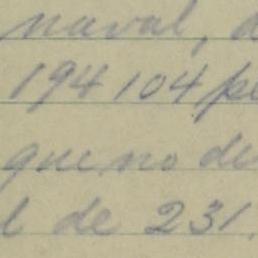 naval, d
194104 pe
que no de
l de 231.